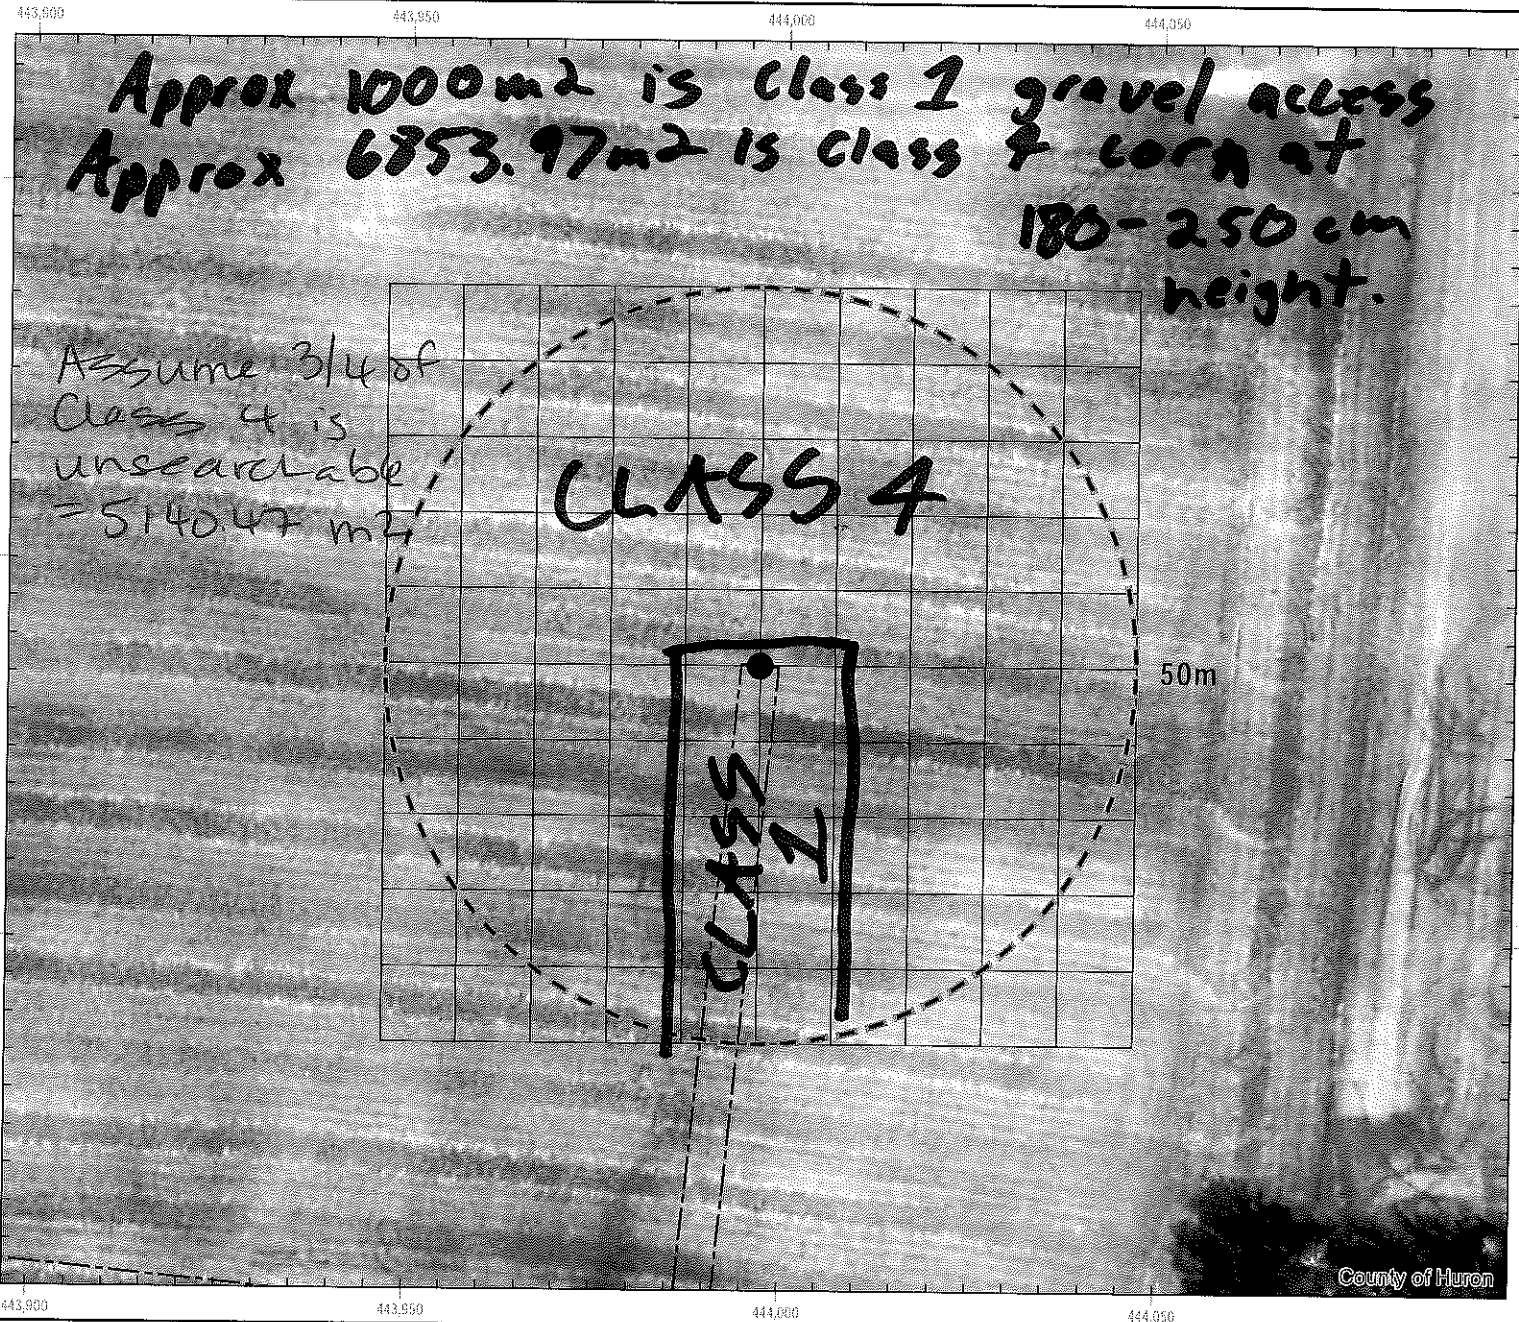 443,900 443,950 444,000 444,050
Approx 1000m2 is Class 1 gravel access
Approx 6853.97m2 is Class 4 corn at
180-250cm
height.
Assume 3/4 of
Class 4 is
unsearchable
=5140.47 m2
CLASS 4
50m
CLASS
1
County of Huron
443,900 443,950 444,000 444,050